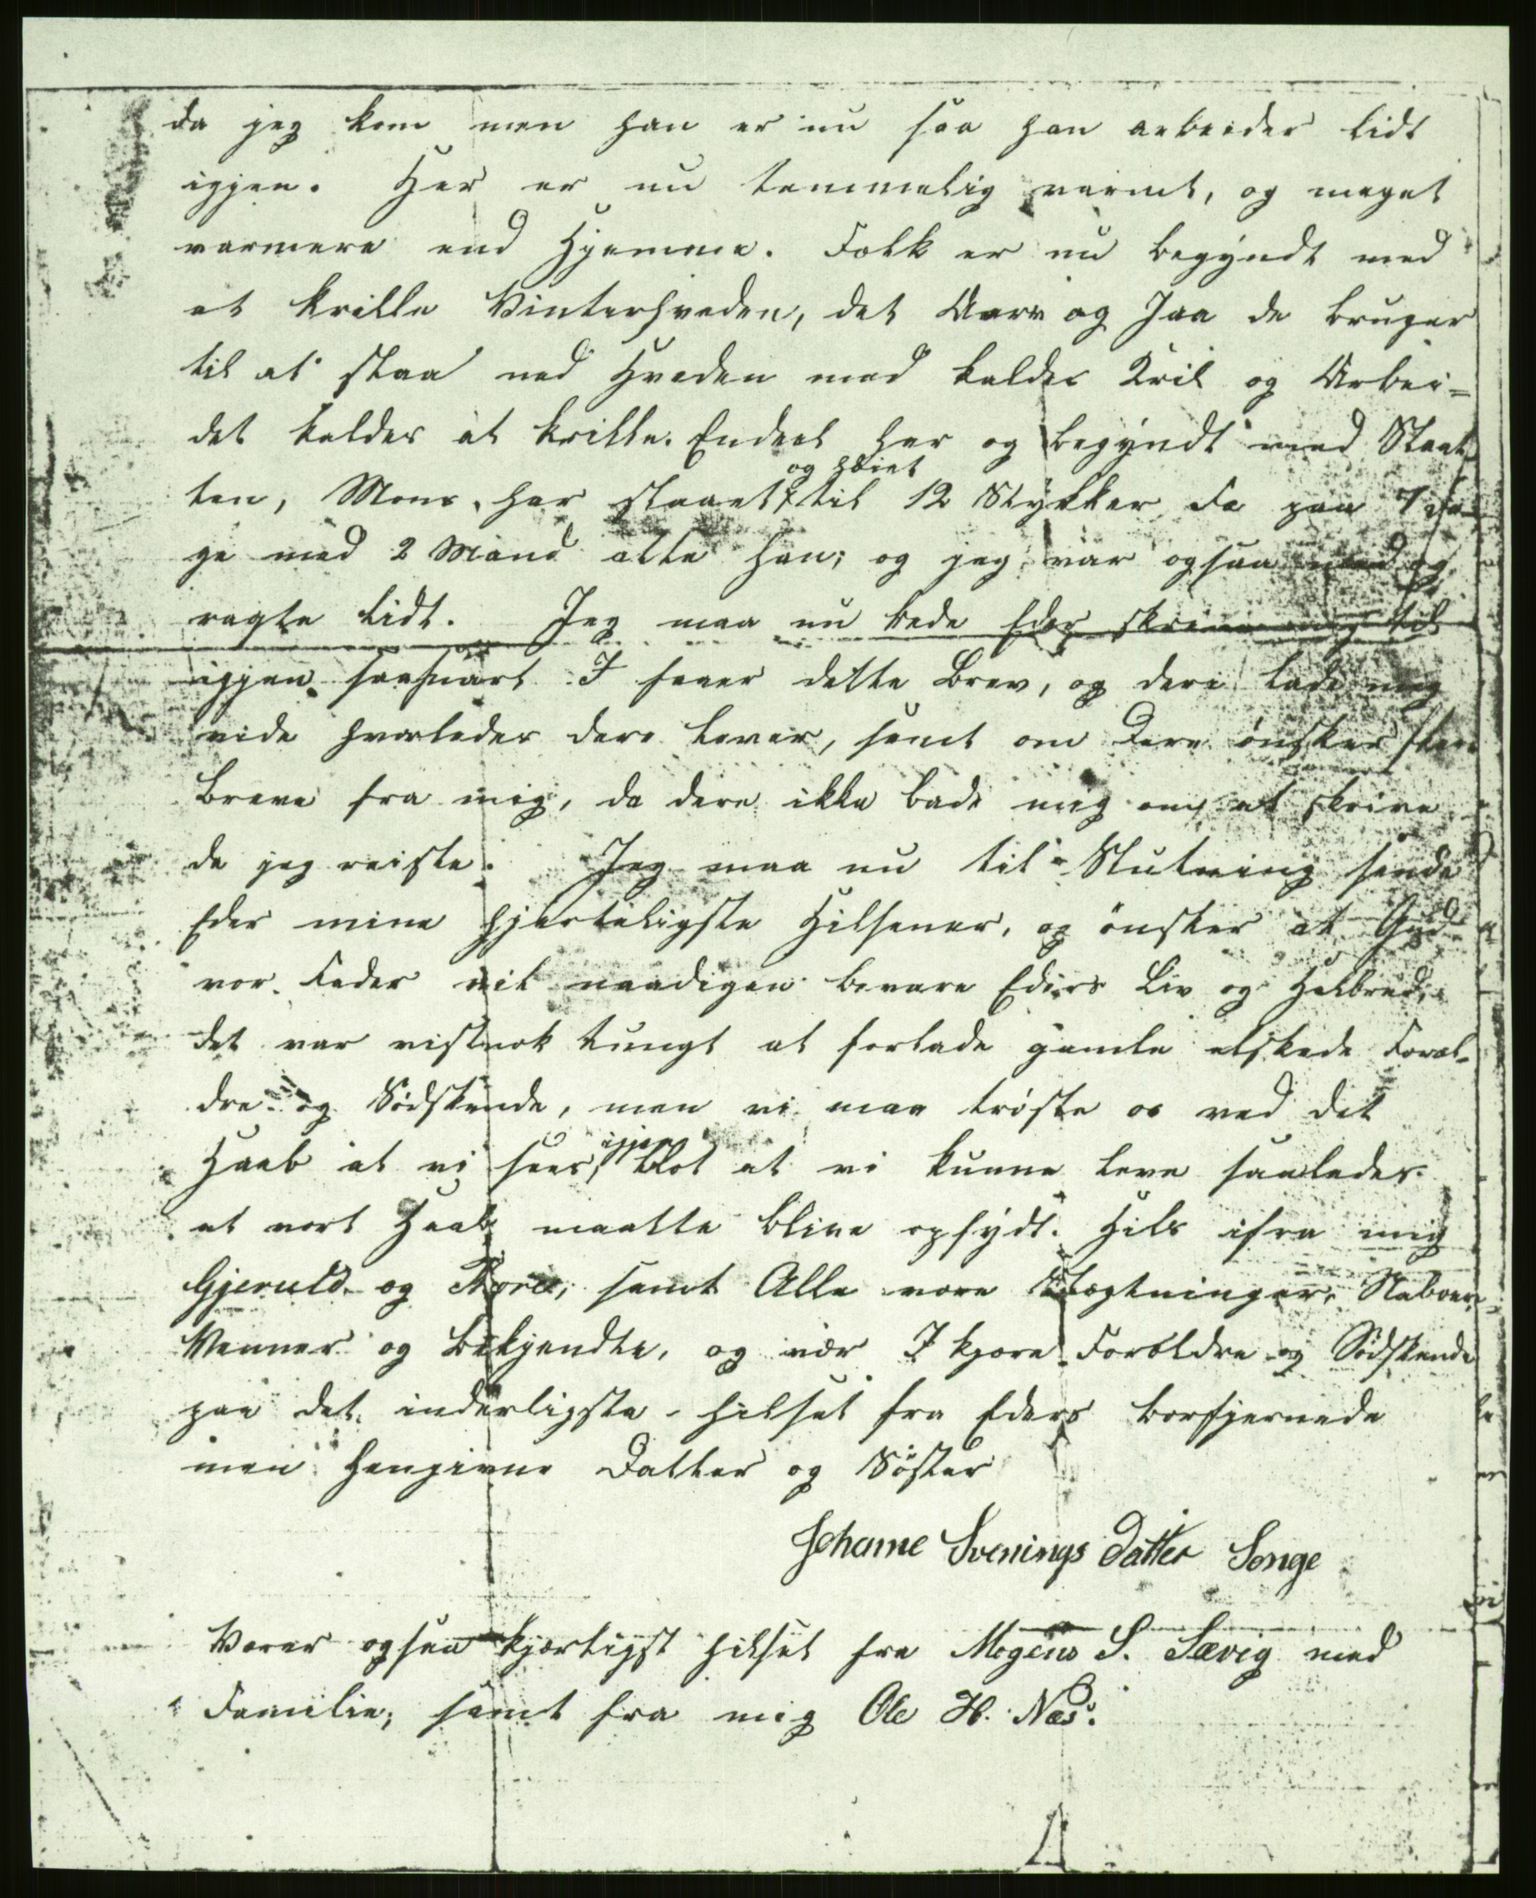 da jeg kom men han er nu saa han arbeider lidt
igjen. Her er nu temmelig varmt, og meget
varmere end Hjemme. Folk er nu begyndt med
at krille Vinterhveden, det Aarv og Jaa de bruger
til at slaa ned Hveden med kaldes Kril og Arbei=
det kaldes at krille. Endeel har og begyndt med Slaat
ten, Mons. har slaaet og høiet til 12 Stykker Fæ paa 7 da
ge med 2 Mand atte han; og jeg var ogsaa med og
ragte lidt. Jeg maa nu bede Eder skrive mig til
igjen saasnart I faaer dette Brev, og deri lade mig
vide hvorledes dere lever, samt om Dere ønsker flere
Breve fra mig, da dere ikke bade mig om at skrive
da jeg reiste. Jeg maa nu til Slutning sende
Eder mine hjerteligste Hilsener, og ønsker at Gud
vor Fader vil naadigen bevare Eders Liv og Helbred,
det var vistnok tungt at forlade gamle elskede Foræl-
dre og Sødskende, men vi maa trøste os ved det
Haab at vi sees igjen, blot at vi kunne leve saaledes
at vort Haab maatte blive opfyldt. Hils ifra mig
Gjeruld og Thore, samt Alle vore Slægtninger, Naboer,
Venner og bekjendte, og vær I kjære Forældre og Sødskende
paa det inderligste hilset fra Eders bortfjernede
men hengivne Datter og Søster
Johanne Svenings Datter Songe
Værer ogsaa kjærligst hilset fra Mogens S. Sævig med
Familie, samt fra mig Ole H. Næs.